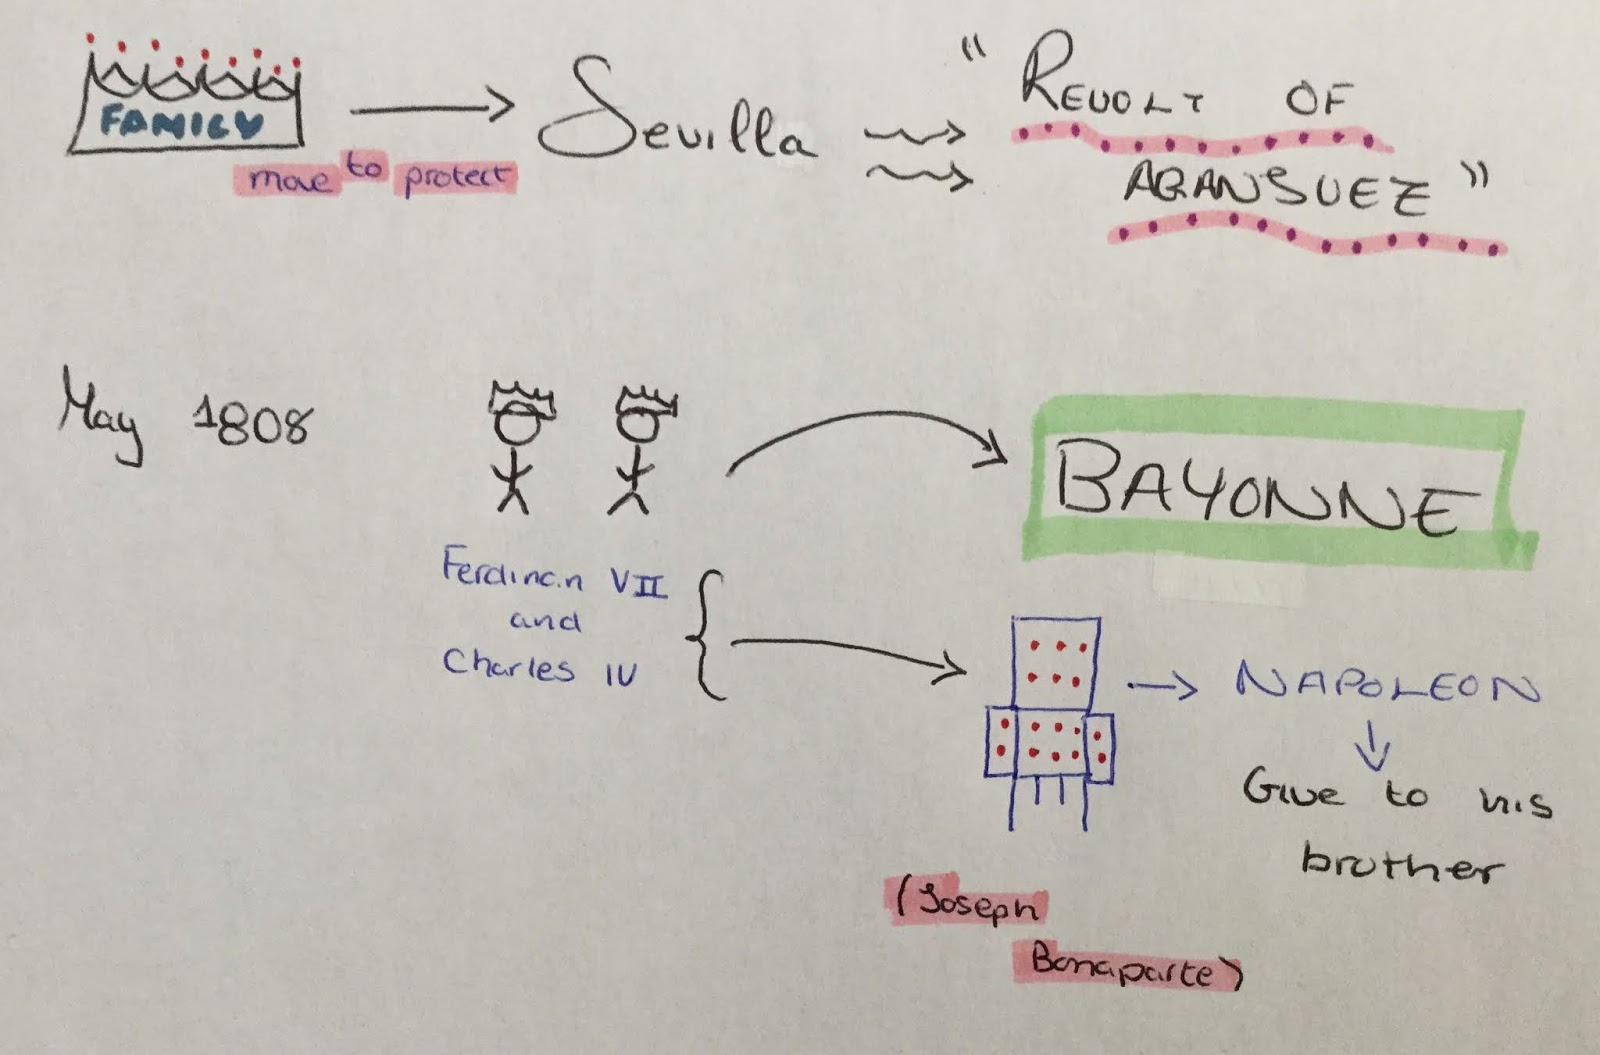 FAMILY
move to protect
Sevilla
"REVOLT OF
ARANSUEZ"
May 1808
BAYONNE
Ferdinan VII
and
Charles IV
NAPOLEON
Give to his
brother
(Joseph
Bonaparte)